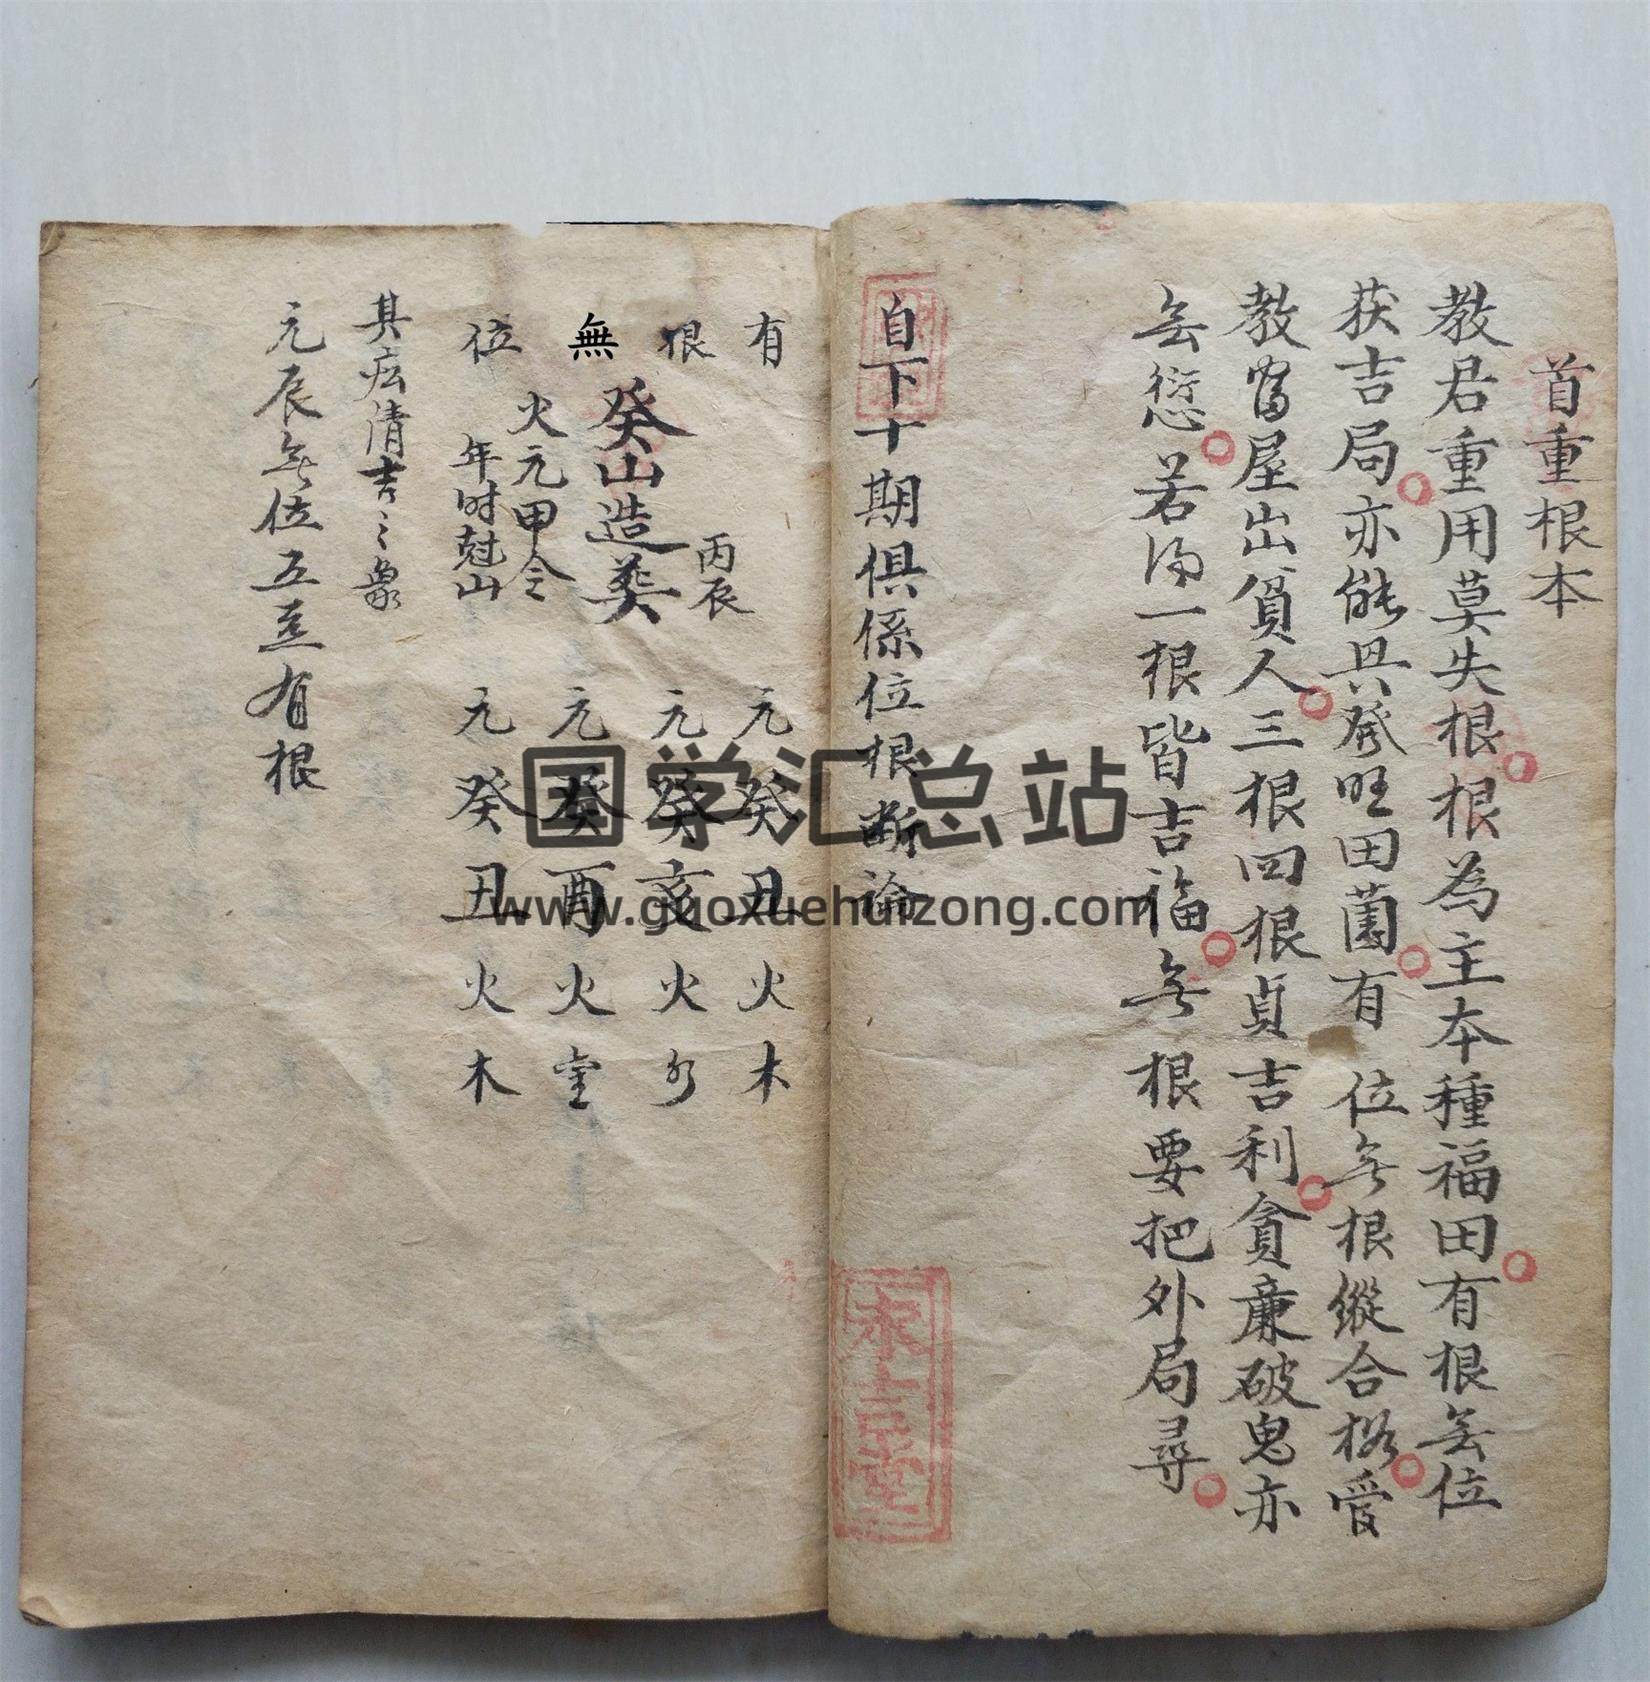 首重根本
教君重用莫失根根為主本種福田有根无位
获吉局亦能具癸旺田薗有位无根縱合格受
教富屋出貧人三根四根貞吉利貪廉破鬼亦
无愆若得一根皆吉福无根要把外局尋
自下十期俱係位根断論
有 元癸丑火木
根 丙辰 元癸亥火水
無 癸山造葬 元癸酉火金
火元甲令
位 年时尅山 元癸丑火木
其痃清吉之象
元辰无位五立有根
国学汇总站
www.guoxuehuizong.com